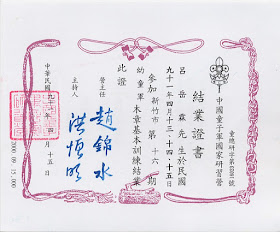 童總研字第6391號
中國童子軍國家研習營
結業證書
呂岳霖先生於民國
九十一年四月十三.十四.十五日
參加新竹市第十六期
幼童軍木章基本訓練結業
此證
營主任 趙錦水
主持人 洪恆明
中華民國九十一年四月十五日
2000.09.15.000